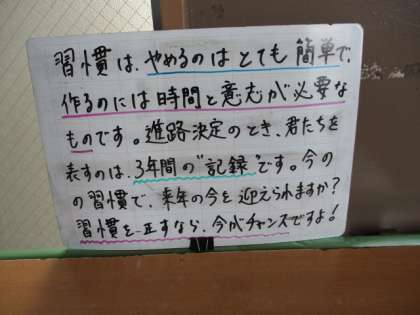 習慣は、やめるのはとても簡単で、
作るのには時間と意志が必要な
ものです。進路決定のとき、君たちを
表すのは、3年間の"記録"です。今の
の習慣で、来年の今を迎えられますか？
習慣を正すなら、今がチャンスですよ！